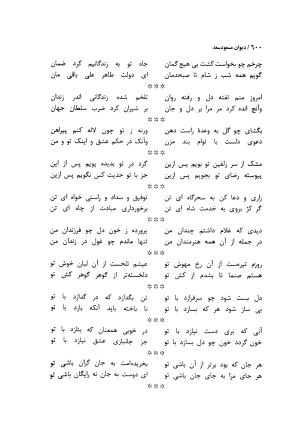 ۶۰۰ / دیوان مسعودسعد
چرخم چو بخواست کشت بی هیچ گمان جاه تو به زندگانیم کرد ضمان
گویم همه شب ز شام تا صبحدمان ای دولت طاهر علی باقی مان
***
امروز منم تفته دل و رفته روان تلخم شده زندگانی اندر زندان
وآنچ اندر کرد مر مرا بر دل و جان بر شیران کرد ضرب سلطان جهان
***
بگشای چو گل به وعدهٔ راست دهن ورنه ز تو چون لاله کنم پیراهن
دعوی دلست با توام بند مزن وآنک در حکم عشق و اینک تو و من
***
مشک از سر زلفین تو بویم پس ازین گرد در تو بدیده پویم پس ازین
پیوسته رضای تو بجویم پس ازین جز با تو حدیث کس نگویم پس ازین
***
زاری و دعا کن به سحرگاه ای تن توفیق و سداد و راستی خواه ای تن
گر کژ بروی به خدمت شاه ای تن برخورداری مبادت از جاه ای تن
***
دیدی که غلام داشتم چندان من پرورده ز خون دل چو فرزندان من
در جمله از آن همه هنرمندان من تنها ماندم چو غول در زندان من
***
روزم تیره‌ست از آن رخ مهوش تو عیشم تلخست از آن لبان خوش تو
هستم صنما تا بشدم از کش تو دلخسته‌تر از گوهر گوهر کش تو
***
دل بست شود چو سرفرازد با تو تن بگدازد که در گدازد با تو
بی ساز شود هر که بسازد با تو نا باخته باید آنکه بازد با تو
***
آنی که پری دست نیازد با تو در خوبی همعنان که بتازد با تو
خون گردد خون چو دل بسازد با تو جز جانبازی عشق نبازد با تو
***
هر جان که بود برتر از آن باشی تو بخریده‌امت به جان گران باشی تو
هر جای مرا به جای جان باشی تو ای دوست به جان نه رایگان باشی تو
***